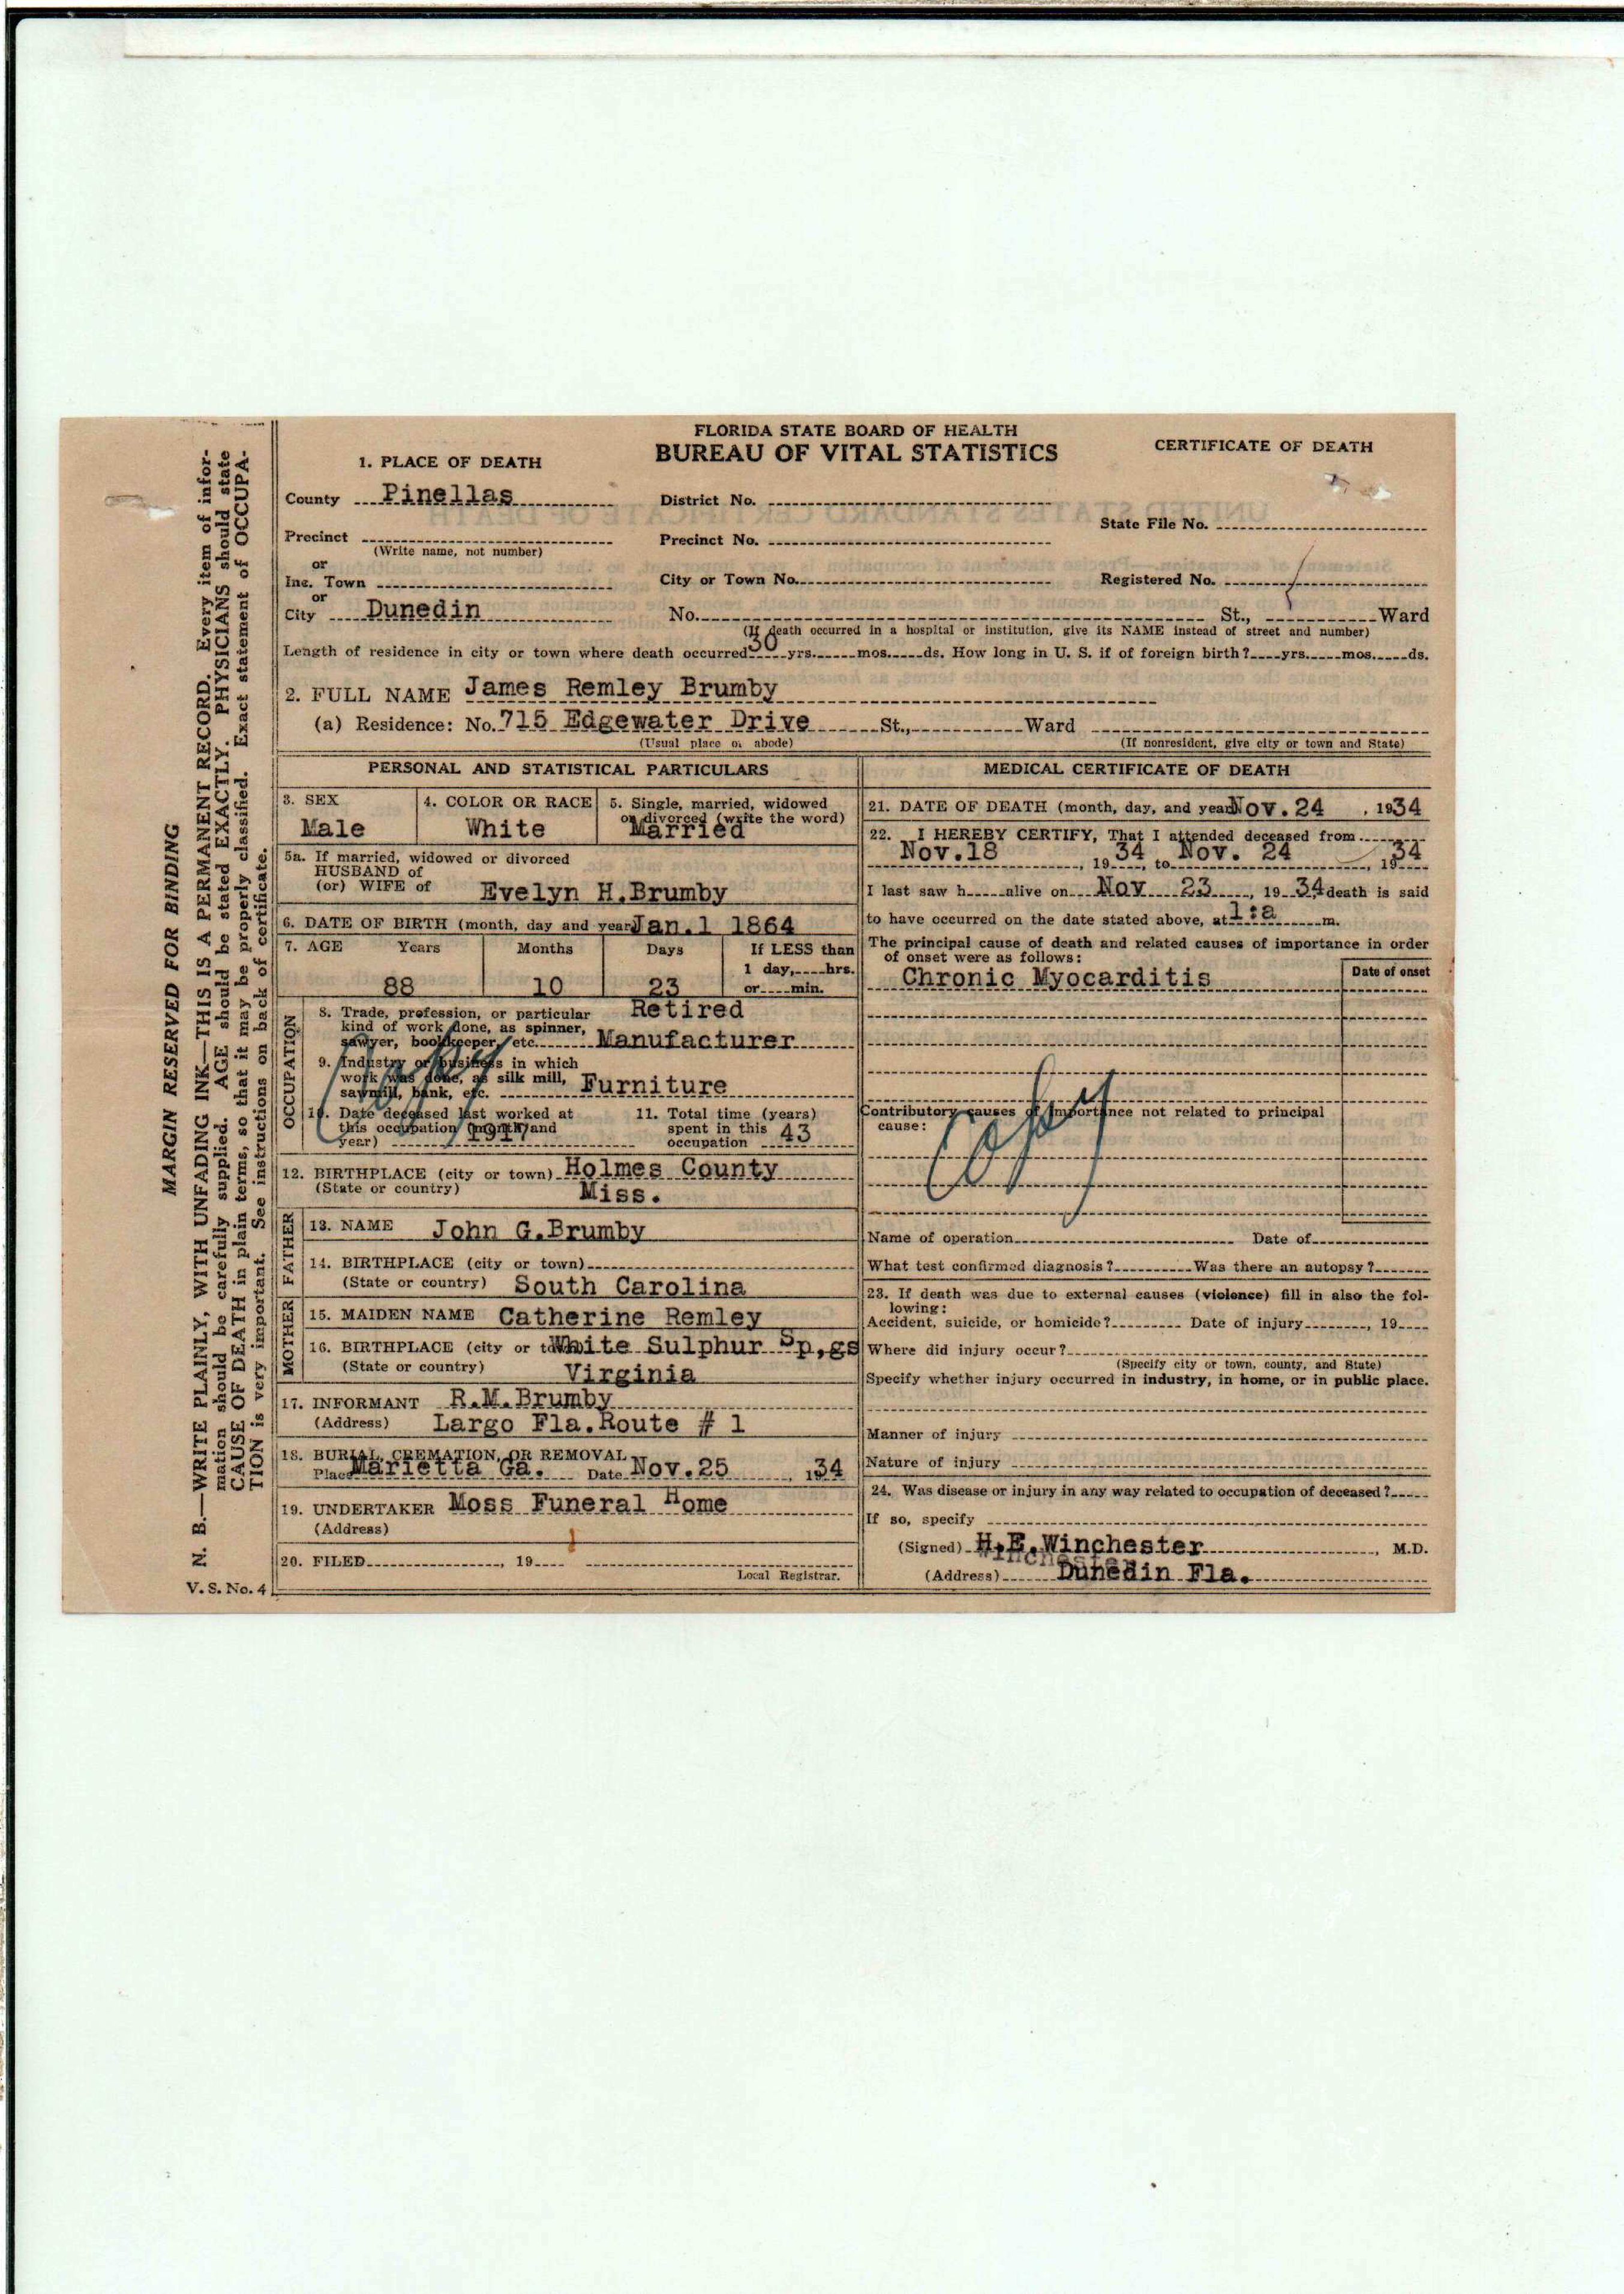 MARGIN RESERVED FOR BINDING
N. B.—WRITE PLAINLY, WITH UNFADING INK—THIS IS A PERMANENT RECORD. Every item of infor-
mation should be carefully supplied. AGE should be stated EXACTLY. PHYSICIANS should state
CAUSE OF DEATH in plain terms, so that it may be properly classified. Exact statement of OCCUPA-
TION is very important. See instructions on back of certificate.
V. S. No. 4
FLORIDA STATE BOARD OF HEALTH
BUREAU OF VITAL STATISTICS
CERTIFICATE OF DEATH
1. PLACE OF DEATH
County Pinellas District No.
State File No.
Precinct Precinct No.
(Write name, not number)
or
Inc. Town City or Town No. Registered No.
or
City Dunedin No. St., Ward
(If death occurred in a hospital or institution, give its NAME instead of street and number)
Length of residence in city or town where death occurred 30 yrs. mos. ds. How long in U. S. if of foreign birth? yrs. mos. ds.
2. FULL NAME James Remley Brumby
(a) Residence: No. 715 Edgewater Drive St., Ward
(Usual place of abode) (If nonresident, give city or town and State)
PERSONAL AND STATISTICAL PARTICULARS
3. SEX 4. COLOR OR RACE 5. Single, married, widowed
or divorced (write the word)
Male White Married
5a. If married, widowed or divorced
HUSBAND of
(or) WIFE of Evelyn H.Brumby
6. DATE OF BIRTH (month, day and year) Jan. 1 1864
7. AGE Years Months Days If LESS than
1 day, hrs.
88 10 23 or min.
OCCUPATION
8. Trade, profession, or particular Retired
kind of work done, as spinner,
sawyer, bookkeeper, etc. Manufacturer
9. Industry or business in which
work was done, as silk mill, Furniture
sawmill, bank, etc.
10. Date deceased last worked at 11. Total time (years)
this occupation (month and spent in this 43
year) 1917 occupation
Copy
12. BIRTHPLACE (city or town) Holmes County
(State or country) Miss.
FATHER
13. NAME John G.Brumby
14. BIRTHPLACE (city or town)
(State or country) South Carolina
MOTHER
15. MAIDEN NAME Catherine Remley
16. BIRTHPLACE (city or town) White Sulphur Sp,gs
(State or country) Virginia
17. INFORMANT R.M.Brumby
(Address) Largo Fla.Route # 1
18. BURIAL, CREMATION, OR REMOVAL
Place Marietta Ga. Date Nov.25 , 1934
19. UNDERTAKER Moss Funeral Home
(Address)
20. FILED , 19
Local Registrar.
MEDICAL CERTIFICATE OF DEATH
21. DATE OF DEATH (month, day, and year) Nov. 24 , 1934
22. I HEREBY CERTIFY, That I attended deceased from
Nov.18 , 19 34 to Nov. 24 , 19 34
I last saw h alive on Nov 23 , 19 34 death is said
to have occurred on the date stated above, at 1:a m.
The principal cause of death and related causes of importance in order
of onset were as follows:
Date of onset
Chronic Myocarditis
Contributory causes of importance not related to principal
cause:
Copy
Name of operation Date of
What test confirmed diagnosis? Was there an autopsy?
23. If death was due to external causes (violence) fill in also the fol-
lowing:
Accident, suicide, or homicide? Date of injury , 19
Where did injury occur?
(Specify city or town, county, and State)
Specify whether injury occurred in industry, in home, or in public place.
Manner of injury
Nature of injury
24. Was disease or injury in any way related to occupation of deceased?
If so, specify
(Signed) H.E.Winchester , M.D.
Winchester
(Address) Dunedin Fla.